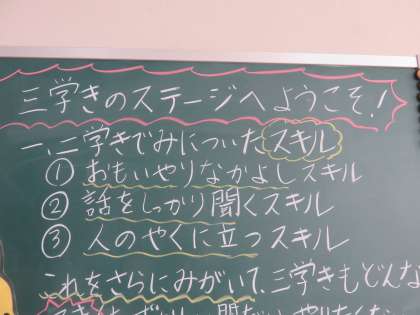 三学きのステージへようこそ!
一、二学きでみについたスキル
① おもいやりなかよしスキル
② 話をしっかり聞くスキル
③ 人のやくに立つスキル
これをさらにみがいて、三学きもどんな